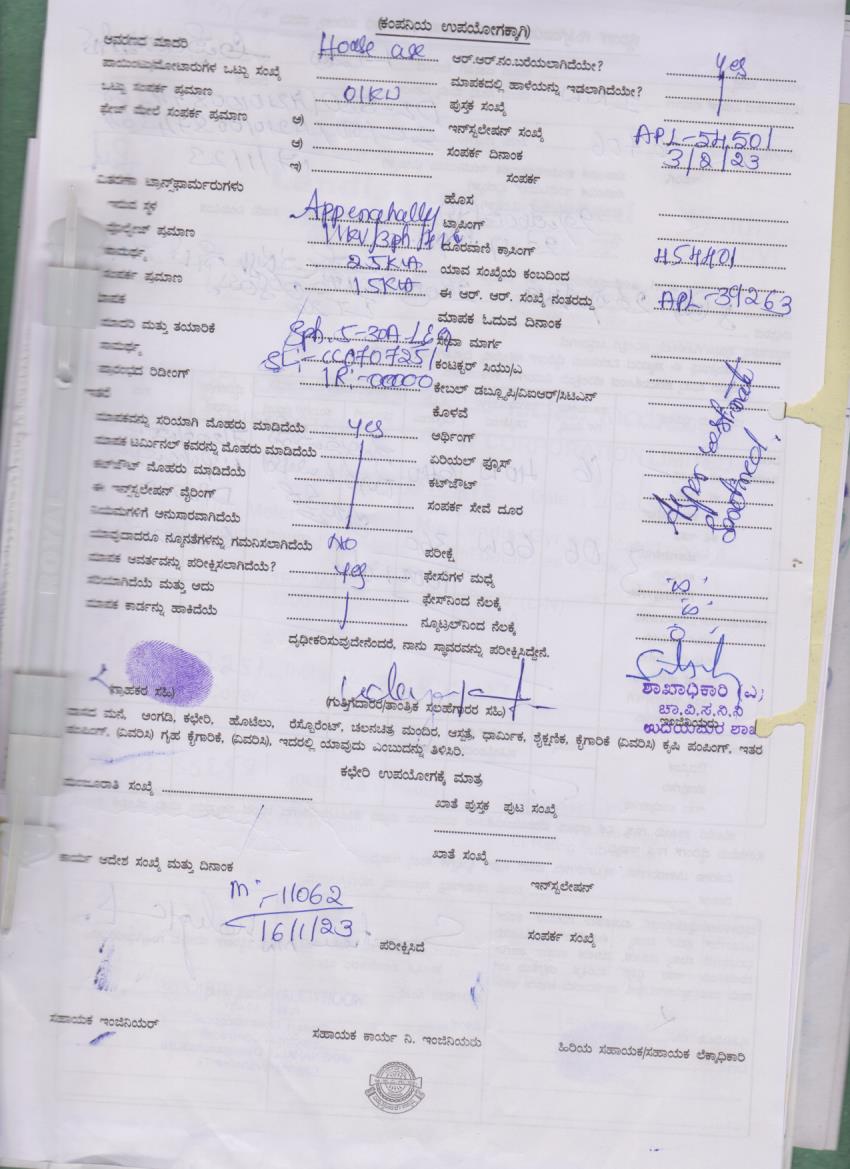 (ಕಂಪನಿಯ ಉಪಯೋಗಕ್ಕಾಗಿ)
ಆವರಣದ ಮಾದರಿ House ಆರ್.ಆರ್.ನಂ.ಬರೆಯಲಾಗಿದೆಯೇ? yes
ಪಾಯಿಂಟು/ಮೋಟಾರುಗಳ ಒಟ್ಟು ಸಂಖ್ಯೆ ಮಾಪಕದಲ್ಲಿ ಹಾಳೆಯನ್ನು ಇಡಲಾಗಿದೆಯೇ?
ಒಟ್ಟು ಸಂಪರ್ಕ ಪ್ರಮಾಣ 01KW ಪುಸ್ತಕ ಸಂಖ್ಯೆ
ಫೇಜ್ ಮೇಲೆ ಸಂಪರ್ಕ ಪ್ರಮಾಣ ಅ) ಇನ್‌ಸ್ಟಲೇಷನ್ ಸಂಖ್ಯೆ APL-54501
ಆ) ಸಂಪರ್ಕ ದಿನಾಂಕ 3/2/23
ಇ) ಸಂಪರ್ಕ
ವಿತರಣಾ ಟ್ರಾನ್ಸ್‌ಫಾರ್ಮರುಗಳು ಹೊಸ
ಇರುವ ಸ್ಥಳ Appenahally ಟ್ಯಾಪಿಂಗ್
ವೋಲ್ಟೇಜ್ ಪ್ರಮಾಣ 11KV/3ph ದೂರವಾಣಿ ಕ್ರಾಸಿಂಗ್
ಸಾಮರ್ಥ್ಯ 25KVA ಯಾವ ಸಂಖ್ಯೆಯ ಕಂಬದಿಂದ
ಸಂಪರ್ಕ ಪ್ರಮಾಣ 15KVA ಈ ಆರ್. ಆರ್. ಸಂಖ್ಯೆ ನಂತರದ್ದು APL-39263
ಮಾಪಕ ಮಾಪಕ ಓದುವ ದಿನಾಂಕ
ಮಾದರಿ ಮತ್ತು ತಯಾರಿಕೆ 5-30A ಸೇವಾ ಮಾರ್ಗ
ಸಾಮರ್ಥ್ಯ ಕಂಡಕ್ಟರ್ ಸಿಯು/ಎ
ಪ್ರಾರಂಭದ ರಿಡೀಂಗ್ IR:-00000 ಕೇಬಲ್ ಡಬ್ಲ್ಯೂಪಿ/ವಿಐಆರ್/ಸಿಟಿಎನ್
ಇತರೆ ಕೊಳವೆ
ಮಾಪಕವನ್ನು ಸರಿಯಾಗಿ ಮೊಹರು ಮಾಡಿದೆಯೆ yes ಆರ್ಥಿಂಗ್
ಮಾಪಕ ಟರ್ಮಿನಲ್ ಕವರನ್ನು ಮೊಹರು ಮಾಡಿದೆಯೆ ಏರಿಯಲ್ ಫ್ಯೂಸ್
ಕಟ್‌ಔಟ್ ಮೊಹರು ಮಾಡಿದೆಯೆ ಕಟ್‌ಔಟ್
ಈ ಇನ್‌ಸ್ಟಲೇಷನ್ ವೈರಿಂಗ್ ಸಂಪರ್ಕ ಸೇವೆ ದೂರ
As per estimate
ನಿಯಮಗಳಿಗೆ ಅನುಸಾರವಾಗಿದೆಯೆ
ಯಾವುದಾದರೂ ನ್ಯೂನತೆಗಳನ್ನು ಗಮನಿಸಲಾಗಿದೆಯೆ NO ಪರೀಕ್ಷೆ
ಮಾಪಕ ಆವರ್ತವನ್ನು ಪರೀಕ್ಷಿಸಲಾಗಿದೆಯೆ? yes ಫೇಸುಗಳ ಮಧ್ಯೆ
ಸರಿಯಾಗಿದೆಯೆ ಮತ್ತು ಅದು ಫೇಸ್‌ನಿಂದ ನೆಲಕ್ಕೆ
ಮಾಪಕ ಕಾರ್ಡನ್ನು ಹಾಕಿದೆಯೆ ನ್ಯೂಟ್ರಲ್‌ನಿಂದ ನೆಲಕ್ಕೆ
ದೃಢೀಕರಿಸುವುದೇನೆಂದರೆ, ನಾನು ಸ್ಥಾವರವನ್ನು ಪರೀಕ್ಷಿಸಿದ್ದೇನೆ.
(ಗ್ರಾಹಕರ ಸಹಿ) (ಗುತ್ತಿಗೆದಾರರ/ತಾಂತ್ರಿಕ ಸಲಹೆಗಾರರ ಸಹಿ) ಇಂಜಿನಿಯರು
ಶಾಖಾಧಿಕಾರಿ (ಎ)
ಚಾ.ವಿ.ಸ.ನಿ.ನಿ
ಉದಯಪುರ ಶಾಖೆ
ವಾಸದ ಮನೆ, ಅಂಗಡಿ, ಕಛೇರಿ, ಹೊಟೆಲು, ರೆಸ್ಟೋರೆಂಟ್, ಚಲನಚಿತ್ರ ಮಂದಿರ, ಆಸ್ಪತ್ರೆ, ಧಾರ್ಮಿಕ, ಶೈಕ್ಷಣಿಕ, ಕೈಗಾರಿಕೆ (ವಿವರಿಸಿ) ಕೃಷಿ ಪಂಪಿಂಗ್, ಇತರ
ಪಂಪಿಂಗ್, (ವಿವರಿಸಿ) ಗೃಹ ಕೈಗಾರಿಕೆ, (ವಿವರಿಸಿ), ಇದರಲ್ಲಿ ಯಾವುದು ಎಂಬುದನ್ನು ತಿಳಿಸಿರಿ.
ಕಛೇರಿ ಉಪಯೋಗಕ್ಕೆ ಮಾತ್ರ
ಮಂಜೂರಾತಿ ಸಂಖ್ಯೆ ಖಾತೆ ಪುಸ್ತಕ ಪುಟ ಸಂಖ್ಯೆ
ಕಾರ್ಯ ಆದೇಶ ಸಂಖ್ಯೆ ಮತ್ತು ದಿನಾಂಕ ಖಾತೆ ಸಂಖ್ಯೆ
m:-11062 ಇನ್‌ಸ್ಟಲೇಷನ್
16/1/23
ಪರೀಕ್ಷಿಸಿದೆ ಸಂಪರ್ಕ ಸಂಖ್ಯೆ
ಸಹಾಯಕ ಇಂಜಿನಿಯರ್ ಸಹಾಯಕ ಕಾರ್ಯ ನಿ. ಇಂಜಿನಿಯರು ಹಿರಿಯ ಸಹಾಯಕ/ಸಹಾಯಕ ಲೆಕ್ಕಾಧಿಕಾರಿ